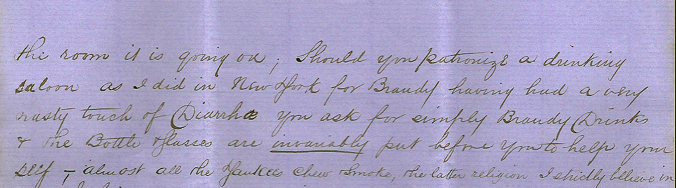 the room it is going on; Should you patronize a drinking
saloon as I did in New York for Brandy having had a very
nasty touch of Diarrha you ask for simply Brandy Drinks
& the Bottle & Glasses are invariably put before you to help your
self – almost all the Yankees Chew & Smoke, the latter religion I strictly believe in